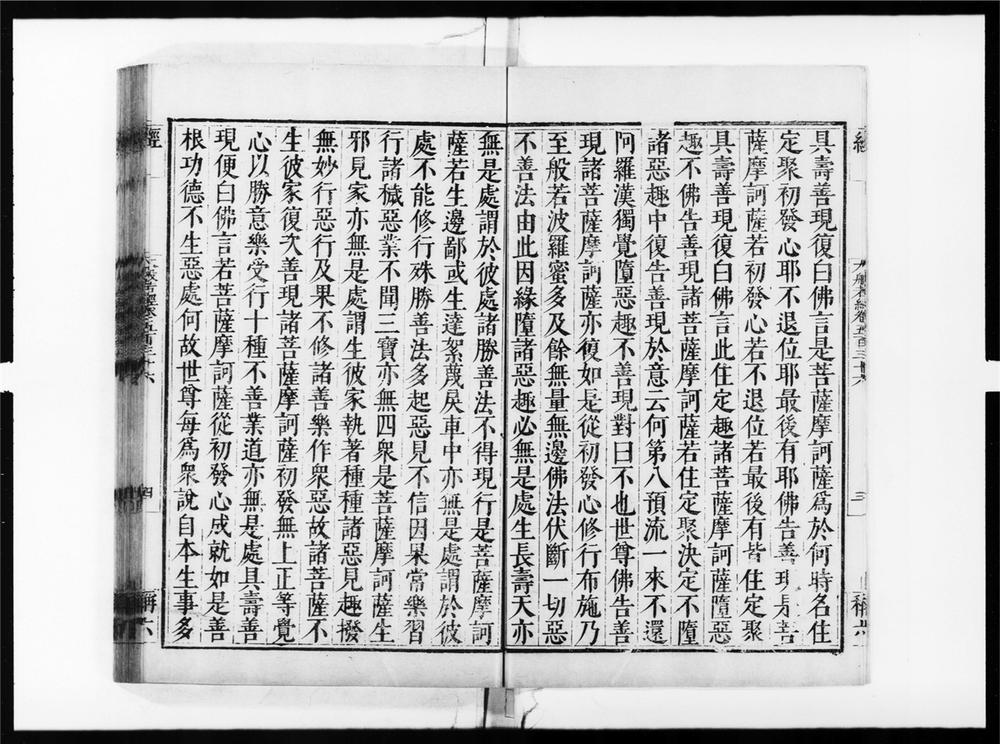 具壽善現復白佛言是菩薩摩訶薩爲於何時名住
定聚初發心耶不退位耶最後有耶佛告善現是菩
薩摩訶薩若初發心若不退位若最後有皆住定聚
具壽善現復白佛言此住定趣諸菩薩摩訶薩墮惡
趣不佛告善現諸菩薩摩訶薩若住定聚決定不墮
諸惡趣中復告善現於意云何第八預流一來不還
阿羅漢獨覺墮惡趣不善現對曰不也世尊佛告善
現諸菩薩摩訶薩亦復如是從初發心修行布施乃
至般若波羅蜜多及餘無量無邊佛法伏斷一切惡
不善法由此因緣墮諸惡趣必無是處生長壽天亦
無是處謂於彼處諸勝善法不得現行是菩薩摩訶
薩若生邊鄙或生達絮蔑戾車中亦無是處謂於彼
處不能修行殊勝善法多起惡見不信因果常樂習
行諸穢惡業不聞三寶亦無四衆是菩薩摩訶薩生
邪見家亦無是處謂生彼家執著種種諸惡見趣撥
無妙行惡行及果不修諸善樂作衆惡故諸菩薩不
生彼家復次善現諸菩薩摩訶薩初發無上正等覺
心以勝意樂受行十種不善業道亦無是處具壽善
現便白佛言若菩薩摩訶薩從初發心成就如是善
根功德不生惡處何故世尊每爲衆說自本生事多
經
四